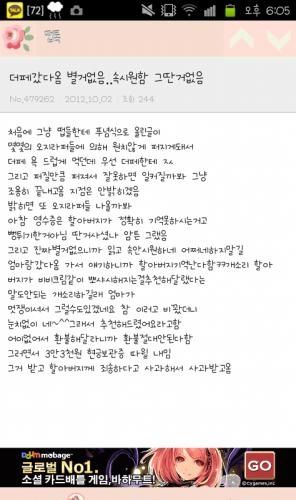 [72]
오후 6:05
땁톡
더페갔다옴 별거없음..속시원함 그딴거없음
No.479262 2012.10.02 조회: 244
처음에 그냥 땝들한테 푸념식으로 올린글이
몇몇의 오지라퍼들에 의해 원치않게 퍼지게돼서
더페 욕 드럽게 먹던데 우선 더페한테 ㅈㅅ
그리고 퍼질만큼 퍼져서 잘못하면 일커질까봐 그냥
조용히 끝내고올 지점은 안밝히겠음
밝히면 또 오지라퍼들 나올까봐
아참 영수증은 할아버지가 정확히 기억못하시는거고
뻥튀기한게아님 딴거사셨나 암튼 그랬음
그리고 진짜별거없으니까 읽고 속안시원하네 어쩌네하지말길
엄마랑갔다옴 가서 얘기하니까 할아버지기억난다함ㅋㅋ개소리 할아
버지가 비비크림같이 뽀샤시해지는걸추천해달랬다는
말도안되는 개소리하길래 엄마가
멋쟁이셔서 그럴수도있겠네요 참 이러고 비꽜더니
눈치없이 네~^^그래서 추천해드렸어요라고함
어이없어서 환불해달라니까 환불절대안된다함
그러면서 3만3천원 현금보관증 따윌 내밈
그거 받고 할아버지께 죄송하다고 사과해서 사과받고옴
Daum mobage
글로벌 No1.
소셜 카드배틀 게임,바하무트!
GO
©Cygames,Inc